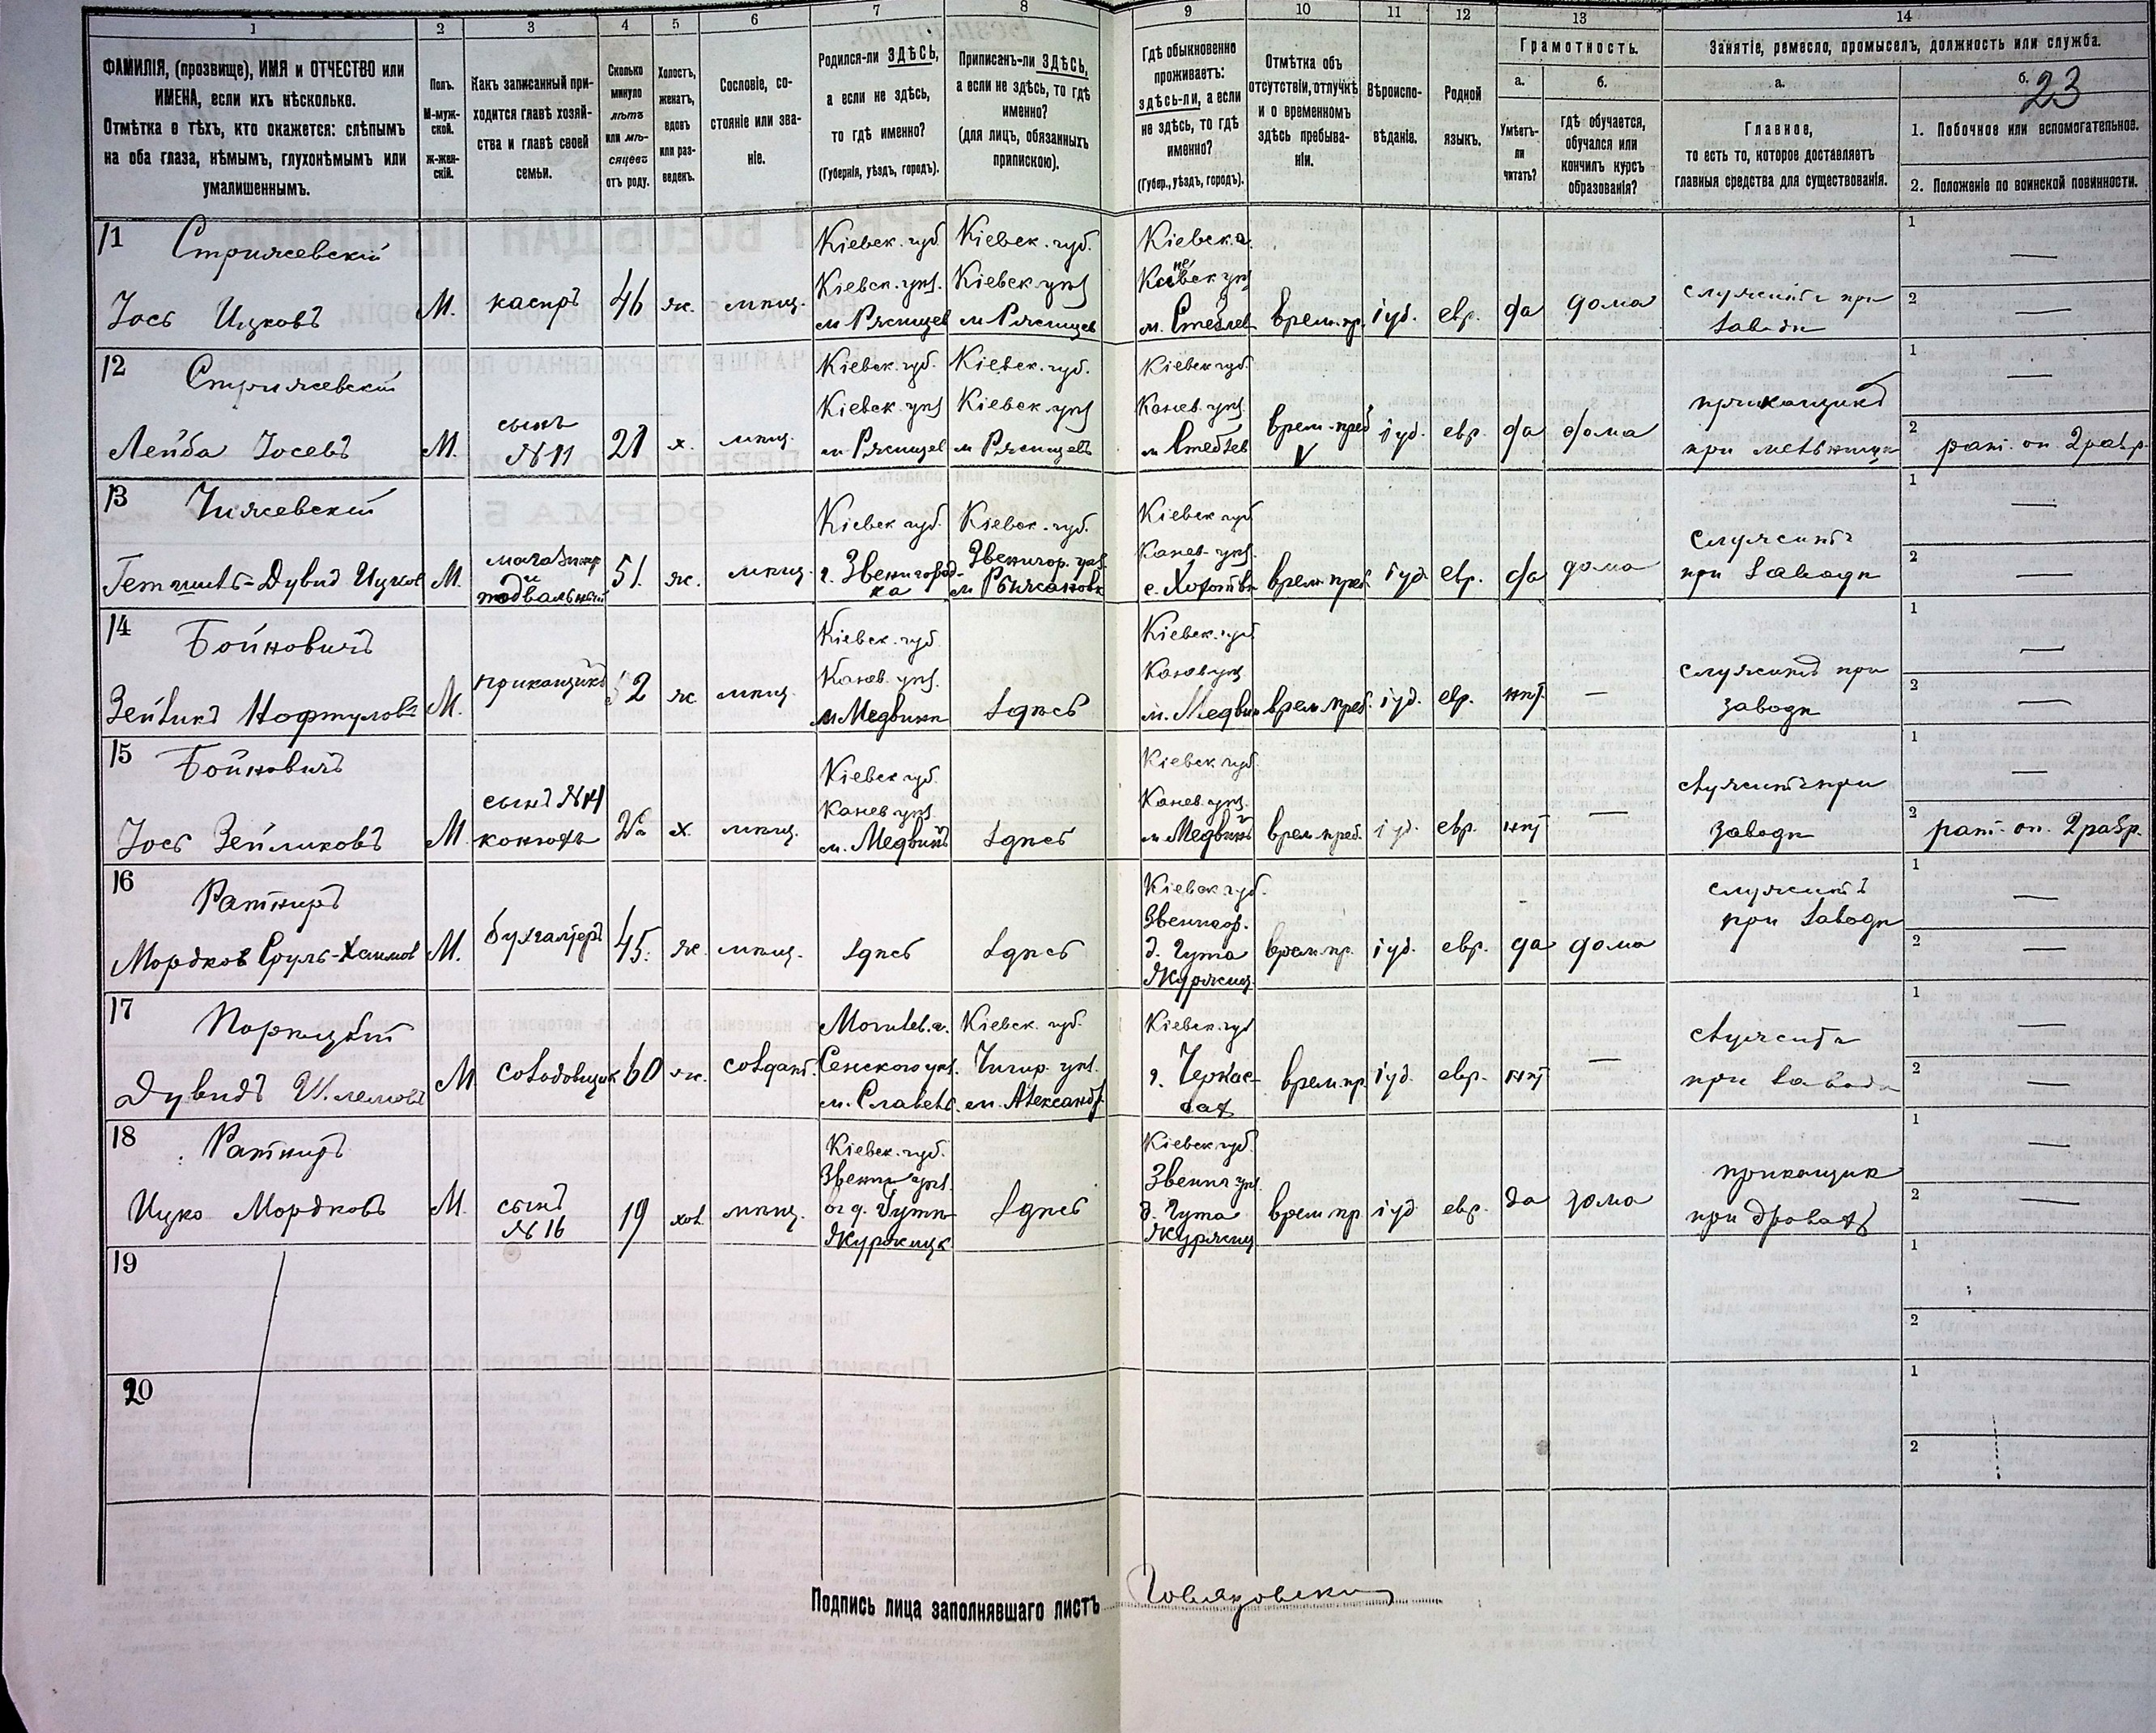 1 2 3 4 5 6 7 8 9 10 11 12 13 14
ФАМИЛІЯ, (прозвище), ИМЯ и ОТЧЕСТВО или
ИМЕНА, если ихъ нѣсколько.
Отмѣтка о тѣхъ, кто окажется: слѣпымъ
на оба глаза, нѣмымъ, глухонѣмымъ или
умалишеннымъ.
Полъ.
М-муж-
ской.
Ж-жен-
скій.
Какъ записанный при-
ходится главѣ хозяй-
ства и главѣ своей
семьи.
Сколько
минуло
лѣтъ
или мѣ-
сяцевъ
отъ роду.
Холостъ,
женатъ,
вдовъ
или раз-
веденъ.
Сословіе, со-
стояніе или зва-
ніе.
Родился-ли ЗДѢСЬ,
а если не здѣсь,
то гдѣ именно?
(Губернія, уѣздъ, городъ).
Приписанъ-ли ЗДѢСЬ,
а если не здѣсь, то гдѣ
именно?
(для лицъ, обязанныхъ
припискою).
Гдѣ обыкновенно
проживаетъ:
здѣсь-ли, а если
не здѣсь, то гдѣ
именно?
(Губер., уѣздъ, городъ).
Отмѣтка объ
отсутствіи, отлучкѣ
и о временномъ
здѣсь пребыва-
ніи.
Вѣроиспо-
вѣданіе.
Родной
языкъ.
Грамотность.
а.
Умѣетъ-
ли
читать?
б.
гдѣ обучается,
обучался или
кончилъ курсъ
образованія?
Занятіе, ремесло, промыселъ, должность или служба.
а.
Главное,
то есть то, которое доставляетъ
главныя средства для существованія.
б.
23
1. Побочное или вспомогательное.
2. Положеніе по воинской повинности.
11
Іось Ицковъ
М.
касиръ
46
ж.
мѣщ.
Кіевск. губ.
Кіевск. уѣз.
м Ржищев
Кіевск. губ.
Кіевск уѣз
м Ржищев
Кіевск. г.
м. Стеблев
врем. пр.
іуд.
евр.
да
дома
служитъ при
заводѣ
1 —
2 —
12
Лейба Іосевъ
М.
сынъ
№ 11
21
х.
мѣщ.
Кіевск. губ.
Кіевск. уѣз
м Ржищев
Кіевск. губ.
Кіевск уѣз
м Ржищевъ
Кіевск губ.
Канев. уѣз.
м Стеблев
врем. преб
V
іуд.
евр.
да
дома
прикащикъ
при мельницѣ
1 —
2 рат. оп. 2 разр.
13
М.
и
подвальный
51
ж.
мѣщ.
Кіевск губ.
г. Звенигород-
ка
Кіевск. губ.
Звенигор. уѣз.
Кіевск губ.
Канев. уѣз.
врем. преб.
іуд
евр.
да
дома
служитъ
при заводѣ
1 —
2 —
14
Бойновичъ
Зейликъ Нафтуловъ
М.
прикащикъ
52
ж
мѣщ.
Кіевск. губ.
Канев. уѣз.
м Медвинѣ
здѣсь
Кіевск. губ
Канев уѣз
м. Медвин
врем. преб.
іуд.
евр.
нѣт.
—
служитъ при
заводѣ
1 —
2 —
15
Бойновичъ
Іось Зейликовъ
М
сынъ № 14
конюхъ
х.
мѣщ.
Кіевск губ.
Канев. уѣз.
м. Медвинѣ
здѣсь
Кіевск губ.
Канев. уѣз.
м Медвинѣ
врем. преб.
іуд.
евр.
нѣт
—
служитъ при
заводѣ
1 —
2 рат. оп. 2 разр.
16
Ратниръ
Мордков Сруль-Хаимов
М.
бухгалтеръ
45.
ж.
мѣщ.
здѣсь
здѣсь
Кіевск губ.
Звенигор.
д. Гута
врем. пр.
іуд.
евр.
да
дома
служитъ
при заводѣ
1 —
2 —
17
Дувидъ Шлемовъ
М
солодовщик
60
ж.
солдат.
Могилев. г.
м. Славень
Кіевск. губ.
Чигир. уѣз.
м. Александр.
Кіевск. губ
г. Черкас-
сах
врем. пр.
іуд.
евр.
нѣт
—
служитъ
при заводѣ
1 —
2 —
18
Ратниръ
Ицко Мордковъ
М.
сынъ
№ 16
19
хол.
мѣщ.
Кіевск. губ.
Звениг уѣз.
здѣсь
Кіевск губ
Звениг уѣз.
д. Гута
врем. пр
іуд
евр.
да
дома
прикащик
при дровахъ
1 —
2 —
19
1
2
20
1
2
Подпись лица заполнявшаго листъ